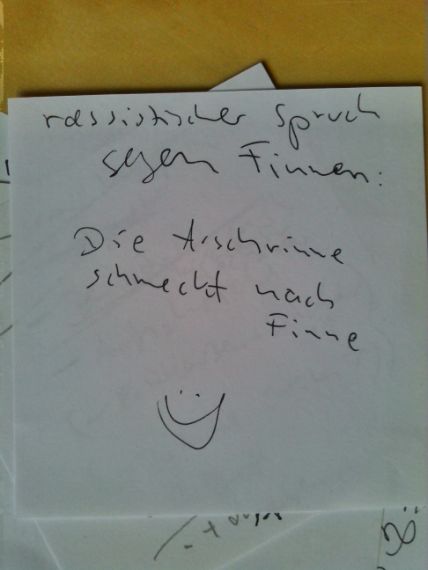 rassistischer Spruch
gegen Finnen:
Die Arschrinne
schmeckt nach
Finne